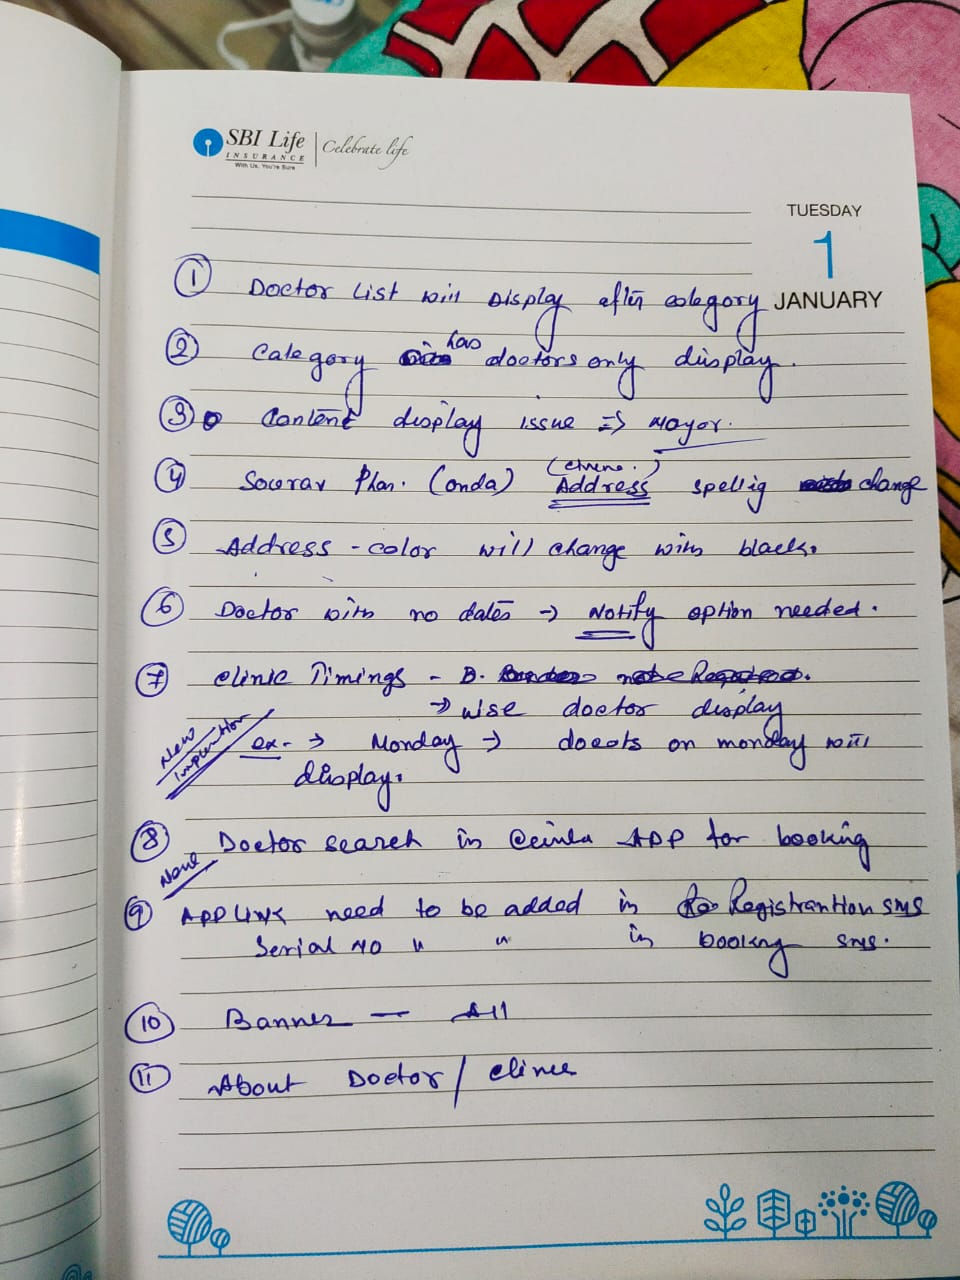 SBI Life
INSURANCE
With Us, You're Sure
Celebrate life
TUESDAY
1
JANUARY
① Doctor List will Display after category
② Category has doctors only display.
③ Content display issue ⇒ Mayor.
④ Sourav Phar. (onda) (clinic.) Address spellig change
⑤ Address - color will change with black.
⑥ Doctor with no dates → Notify option needed.
⑦ Clinic Timings - D.
→ wise doctor display
New
ex. → Monday → docots on monday will
display.
⑧ Doctor search in APP for booking
New
⑨ APP Link need to be added in Registrantion SMS
Serial No " " in booking sms.
⑩ Banner — All
⑪ About Doctor / clinic